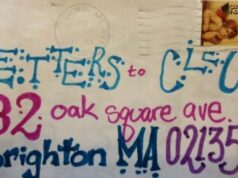 ETTERS to CLEO
32 oak square ave.
brighton MA 02135